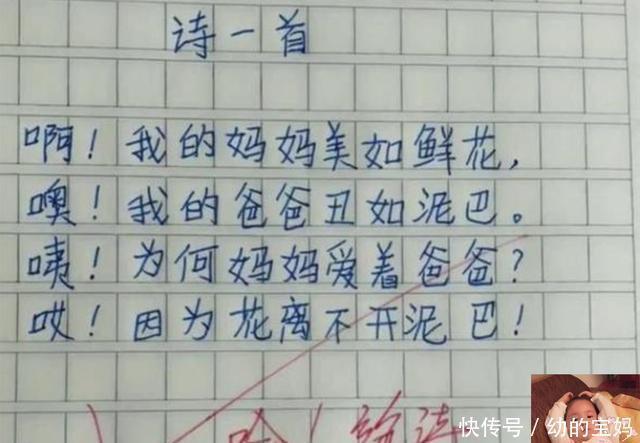 诗一首
啊！我的妈妈美如鲜花，
噢！我的爸爸丑如泥巴。
咦！为何妈妈爱着爸爸？
哎！因为花离不开泥巴！
快传号／幼的宝妈